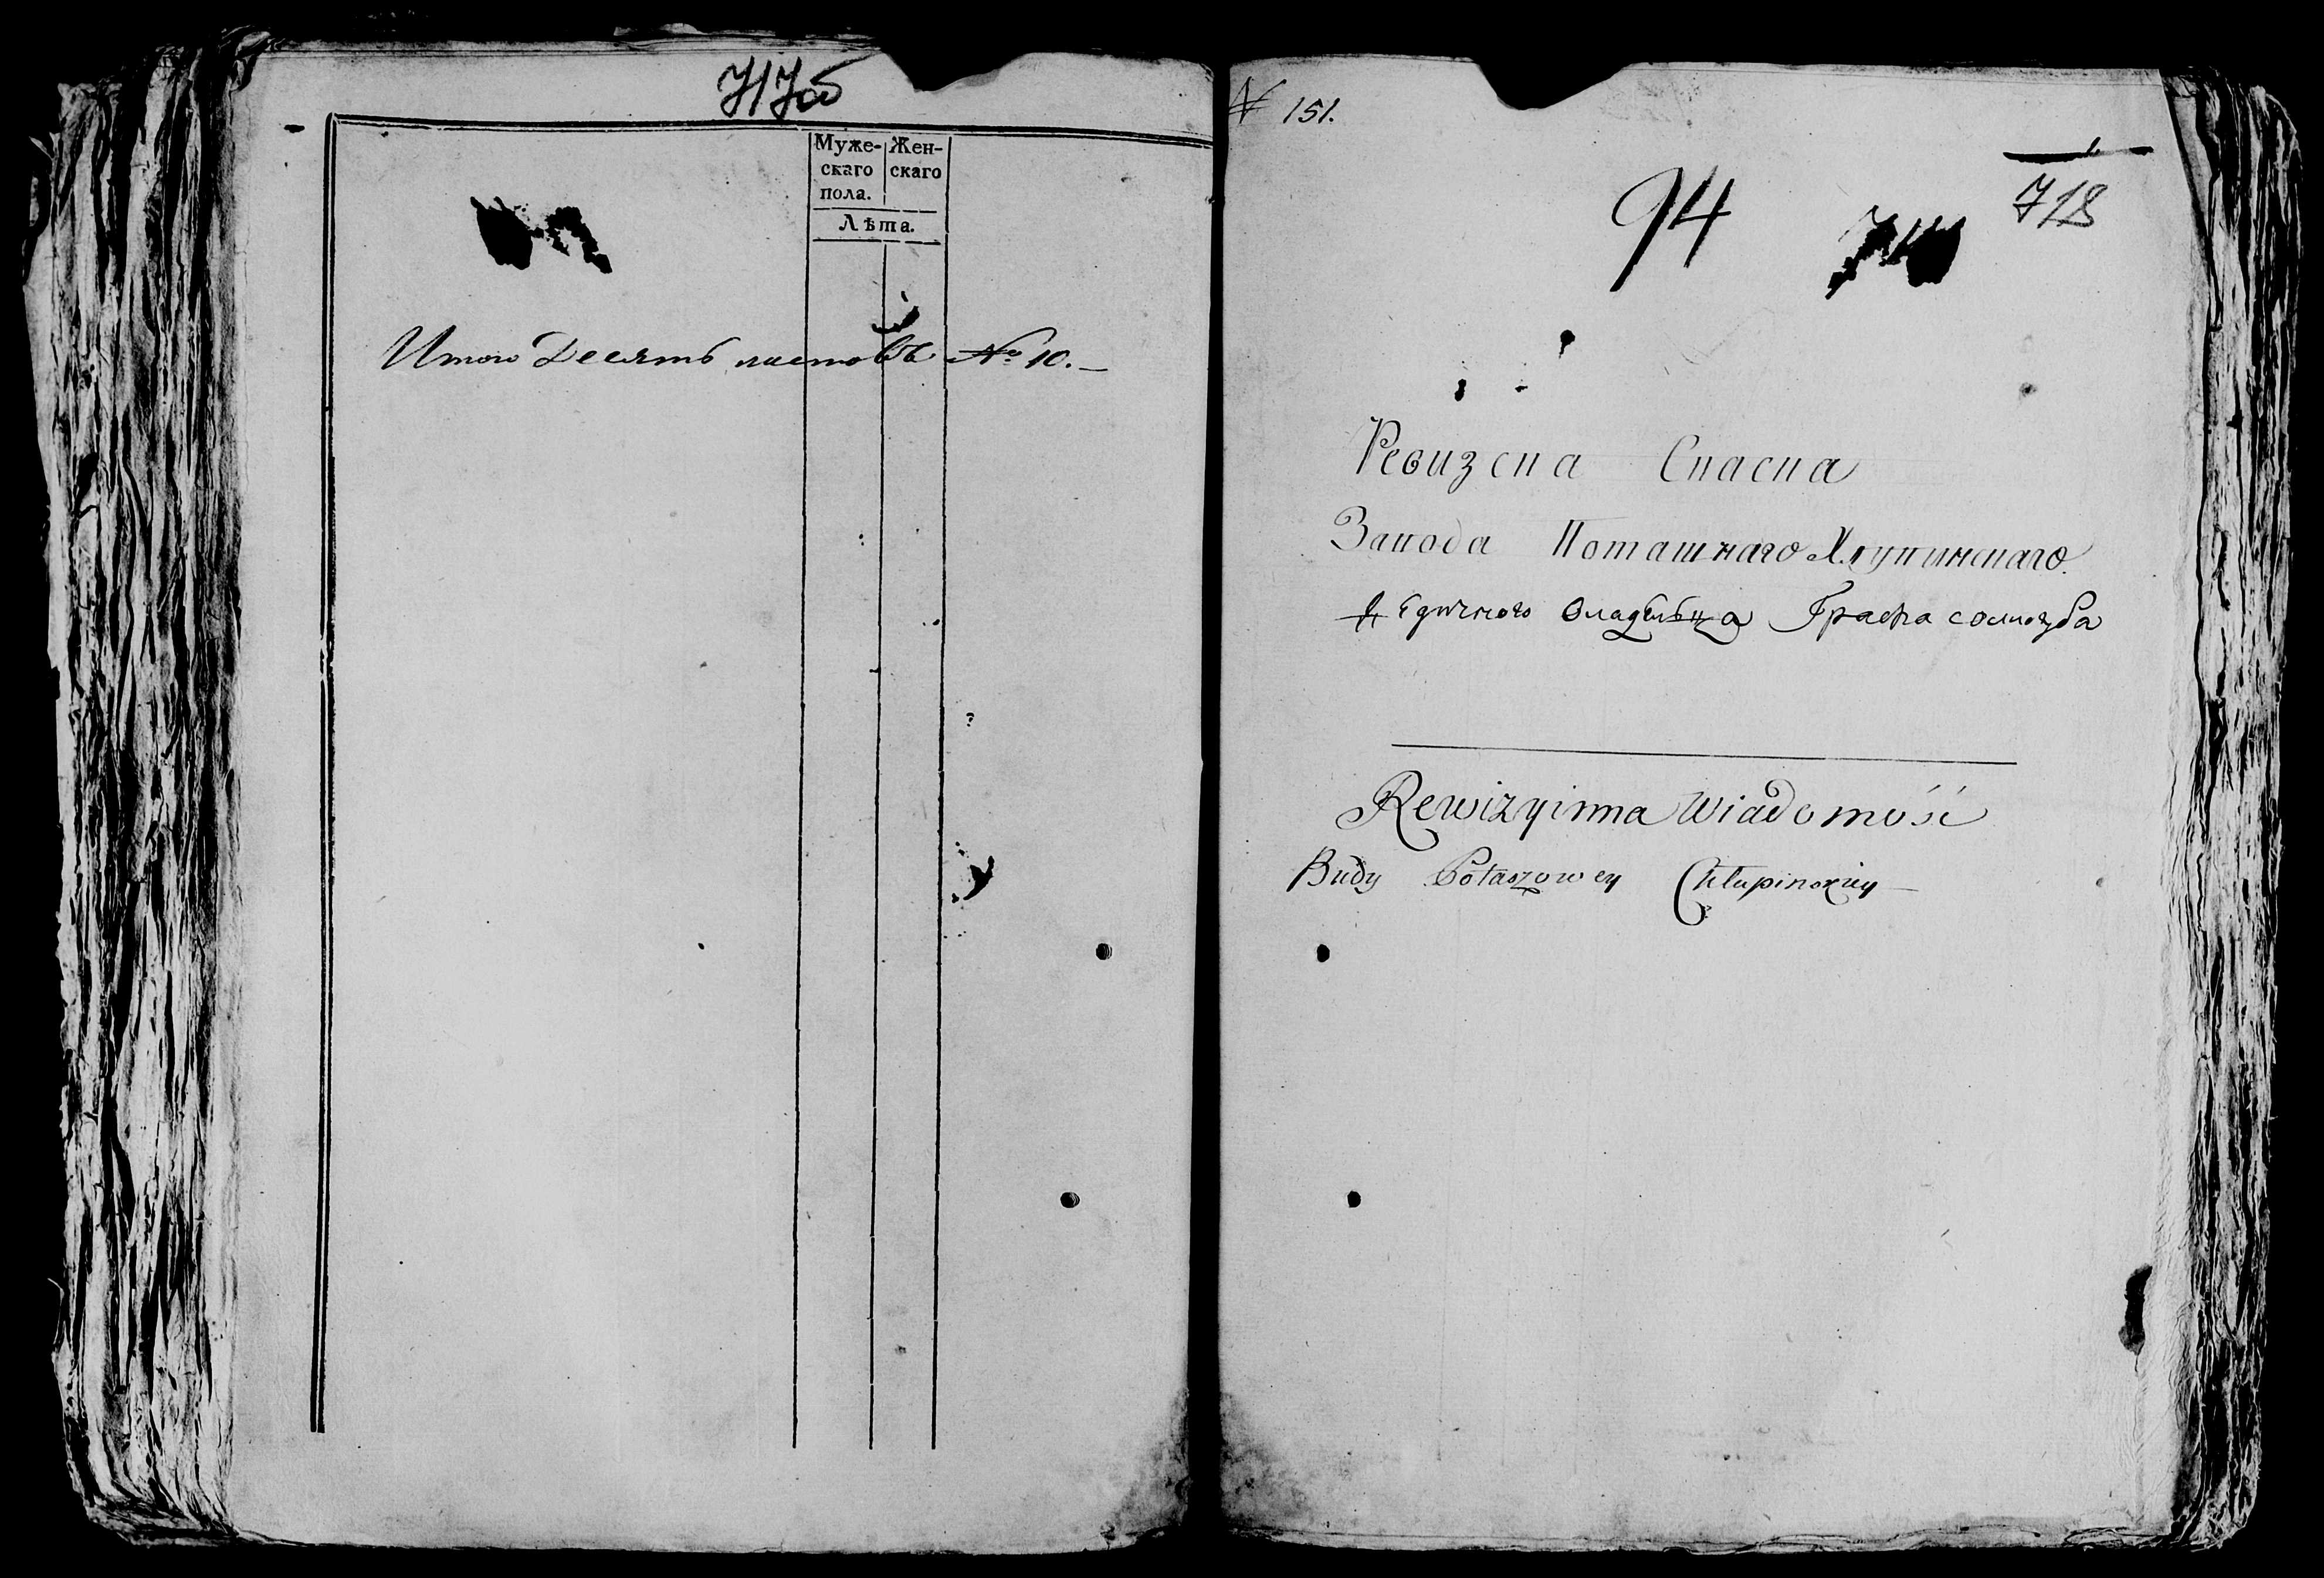 717об
Муже-
скаго
пола.
Жен-
скаго
Лѣта.
Итого Десять листовъ № 10.
№ 151.
1
718
94
Ревизска Сказка
Завода Поташнаго Хлупинскаго
Владѣльца Графа Сологуба
Rewizyinna Wiadomość
Budy Potaszowey Chłupinskiey